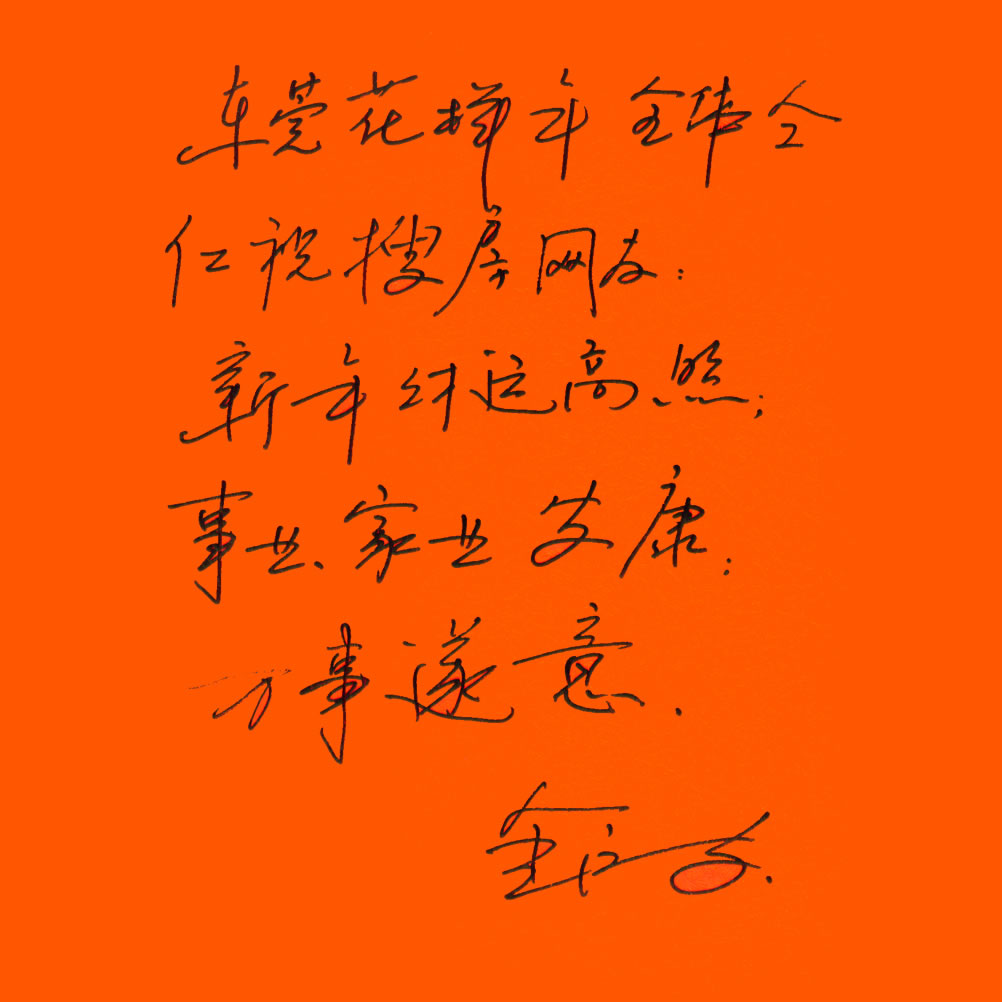 东莞花样年全体仝
仁祝搜房网友：
新年财运高照；
事业、家业安康；
万事遂意.